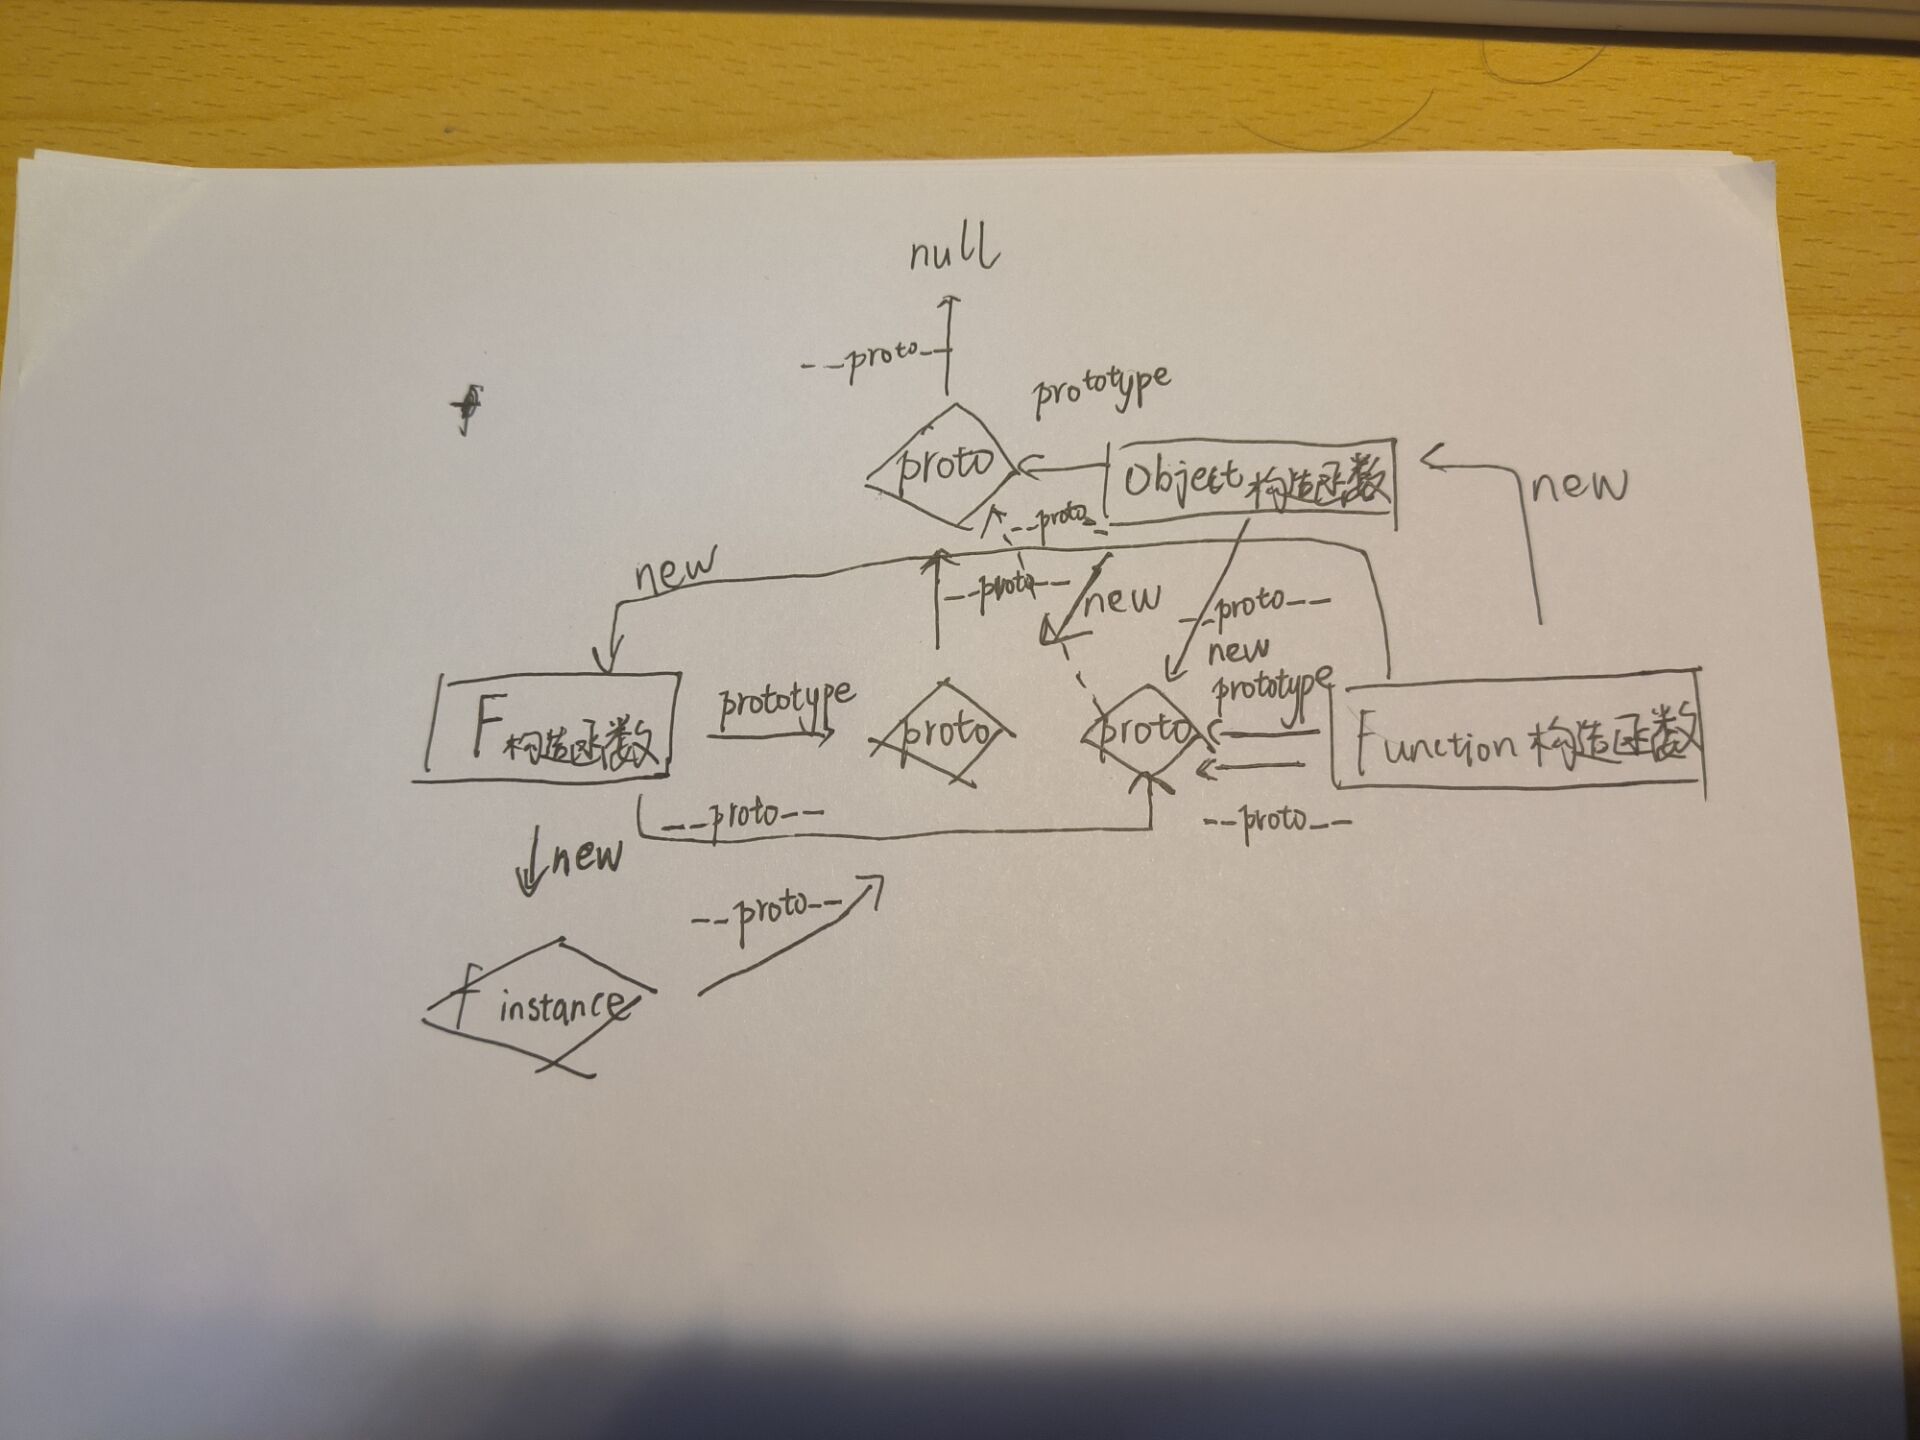 null
--proto--
prototype
proto
Object构造函数
new
--proto--
new
--proto--
new
--proto--
new
prototype
F构造函数
prototype
proto
proto
Function构造函数
--proto--
--proto--
new
--proto--
f instance